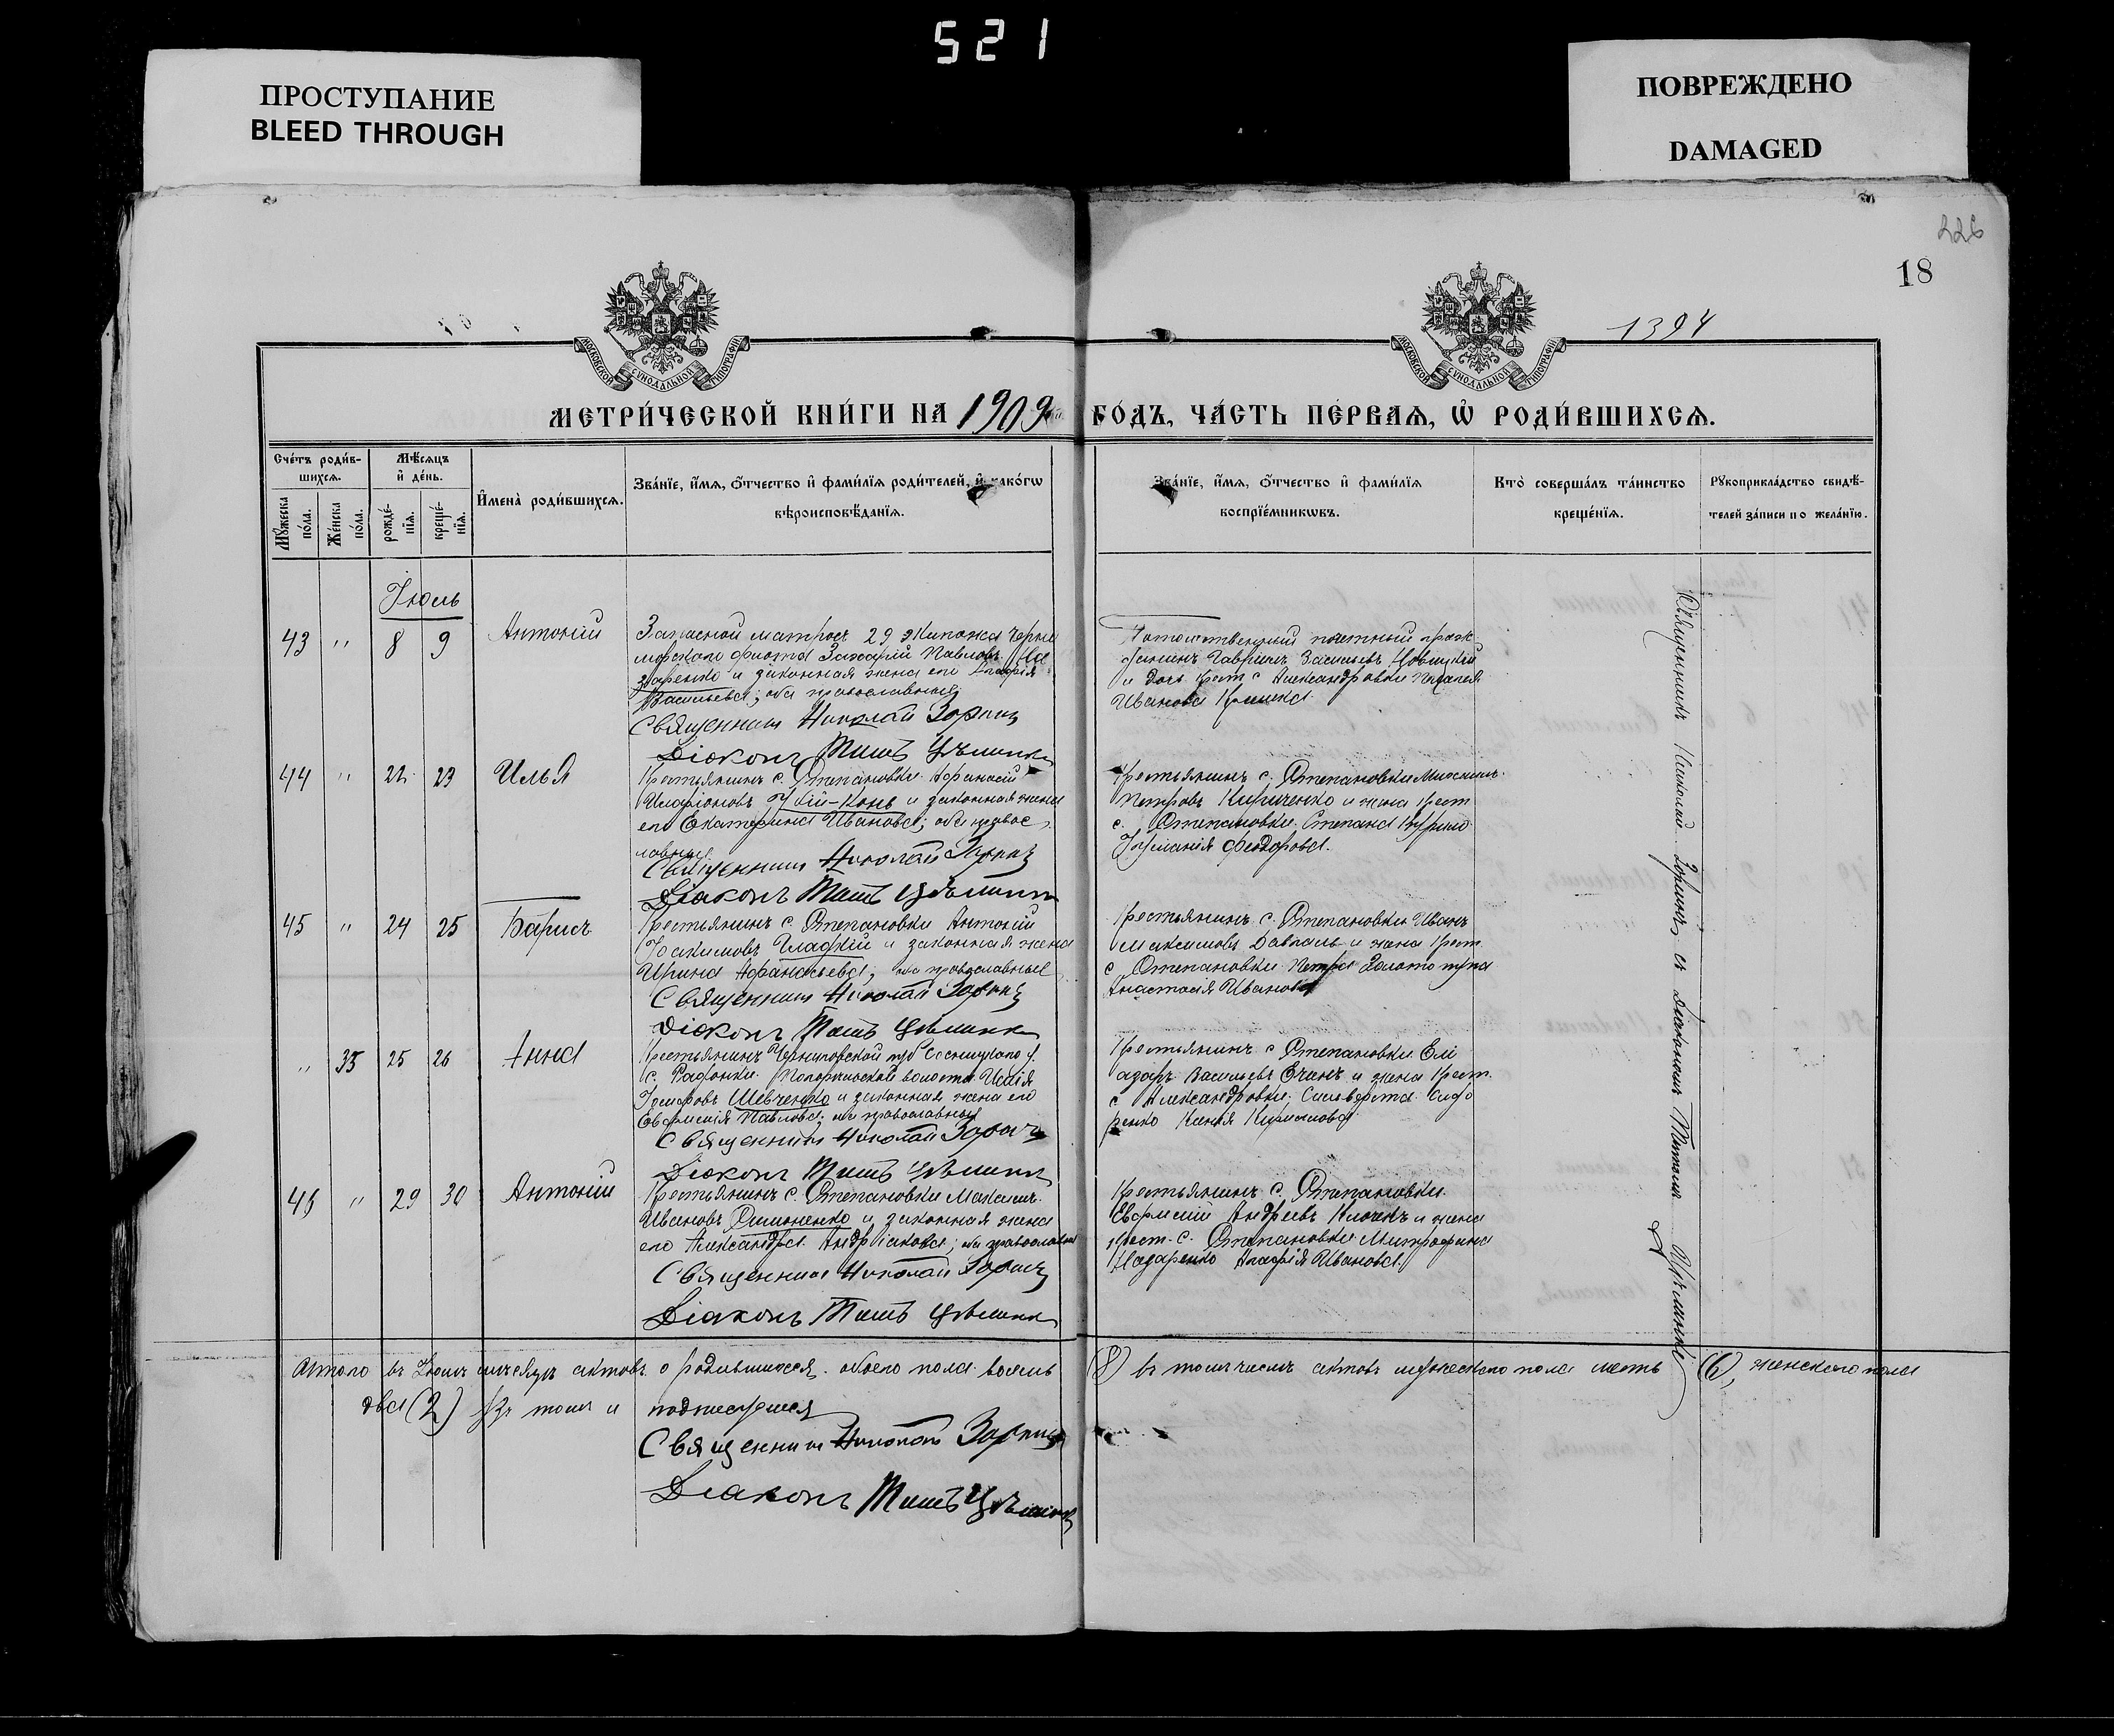 521
ПРОСТУПАНИЕ
BLEED THROUGH
ПОВРЕЖДЕНО
DAMAGED
226
18
1394
МОСКОВСКОЙ СѴНОДАЛЬНОЙ ТИПОГРАФІИ
МОСКОВСКОЙ СѴНОДАЛЬНОЙ ТИПОГРАФІИ
МЕТРИ́ЧЕСКОЙ КНИ́ГИ НА 1909 ГО́ДЪ, ЧА́СТЬ ПЕ́РВАѦ, Ѡ҆ РОДИ́ВШИХСѦ.
Сче́тъ роди́в-
шихсѧ.
Мѣ́сѧцъ
и҆ де́нь.
Мꙋ́жеска
по́ла.
Же́нска
по́ла.
рожде́-
нїѧ.
креще́-
нїѧ.
И҆мена̀ роди́вшихсѧ.
Зва́нїе, и҆́мѧ, ѻ҆́тчество и҆ фами́лїѧ роди́телей, и҆ како́гѡ
вѣроисповѣ́данїѧ.
Зва́нїе, и҆́мѧ, ѻ҆́тчество и҆ фами́лїѧ
воспрїе́мникѡвъ.
Кто̀ соверша́лъ та́инство
креще́нїѧ.
Рꙋкоприкла́дство свидѣ́-
телей за́писи по жела́нїю.
Іюль
43 " 8 9 Антоній
Запасной матросъ 29 экипажа Черно
морскаго флота Захарій Павловъ На
заренко и законная жена его Агафія
Васильева; оба православные
Священникъ Николай Зоринъ
Діаконъ Титъ
Потомственный почетный граж
данинъ Гавриилъ Васильевъ
и дочь крест. с Александровки Пелагея
Иванова
44 " 22 23 Илья
Крестьянинъ с. Степановки Афанасій
Иларіоновъ Кій-Конь и законная жена
его Екатерина Иванова; оба правос
лавные
Священникъ Николай Зоринъ
Діаконъ Титъ
Крестьянинъ с. Степановки
Петровъ Кириченко и жена крест
с. Степановки Степана
Феодорова.
45 " 24 25 Борисъ
Крестьянинъ с. Степановки Антоній
Іоакимовъ Гладкій и законная жена
Ирина Афанасьева; оба православные
Священникъ Николай Зоринъ
Діаконъ Титъ
Крестьянинъ с. Степановки Иванъ
Максимовъ и жена крест.
с Степановки Петра
Анастасія Иванова
" 35 25 26 Анна
Крестьянинъ Черниговской губ Сосницкаго у.
с. волости Исаія
Шевченко и законная жена его
Евфимія Павлова; оба православные
Священникъ Николай Зоринъ
Діаконъ Титъ
Крестьянинъ с Степановки Елі
азаръ Васильевъ и жена крест.
с Александровки Сильвестра Сидо
ренко Ксенія
46 " 29 30 Антоній
Крестьянинъ с. Степановки Максимъ
Ивановъ Симоненко и законная жена
его Александра Андріанова; оба православные
Священникъ Николай Зоринъ
Діаконъ Титъ
Крестьянинъ с. Степановки
Евфимій Андреевъ и жена
крест. с. Степановки Митрофана
Назаренко Агафія Иванова
Священникъ Николай Зоринъ съ діакономъ Титомъ
Итого въ Іюлѣ мѣсяцѣ актовъ о родившихся обоего пола восемь (8) въ томъ числѣ актовъ мужескаго пола шесть (6), женскаго пола
два (2) Въ томъ и подписуемся
Священникъ Николай Зоринъ
Діаконъ Титъ